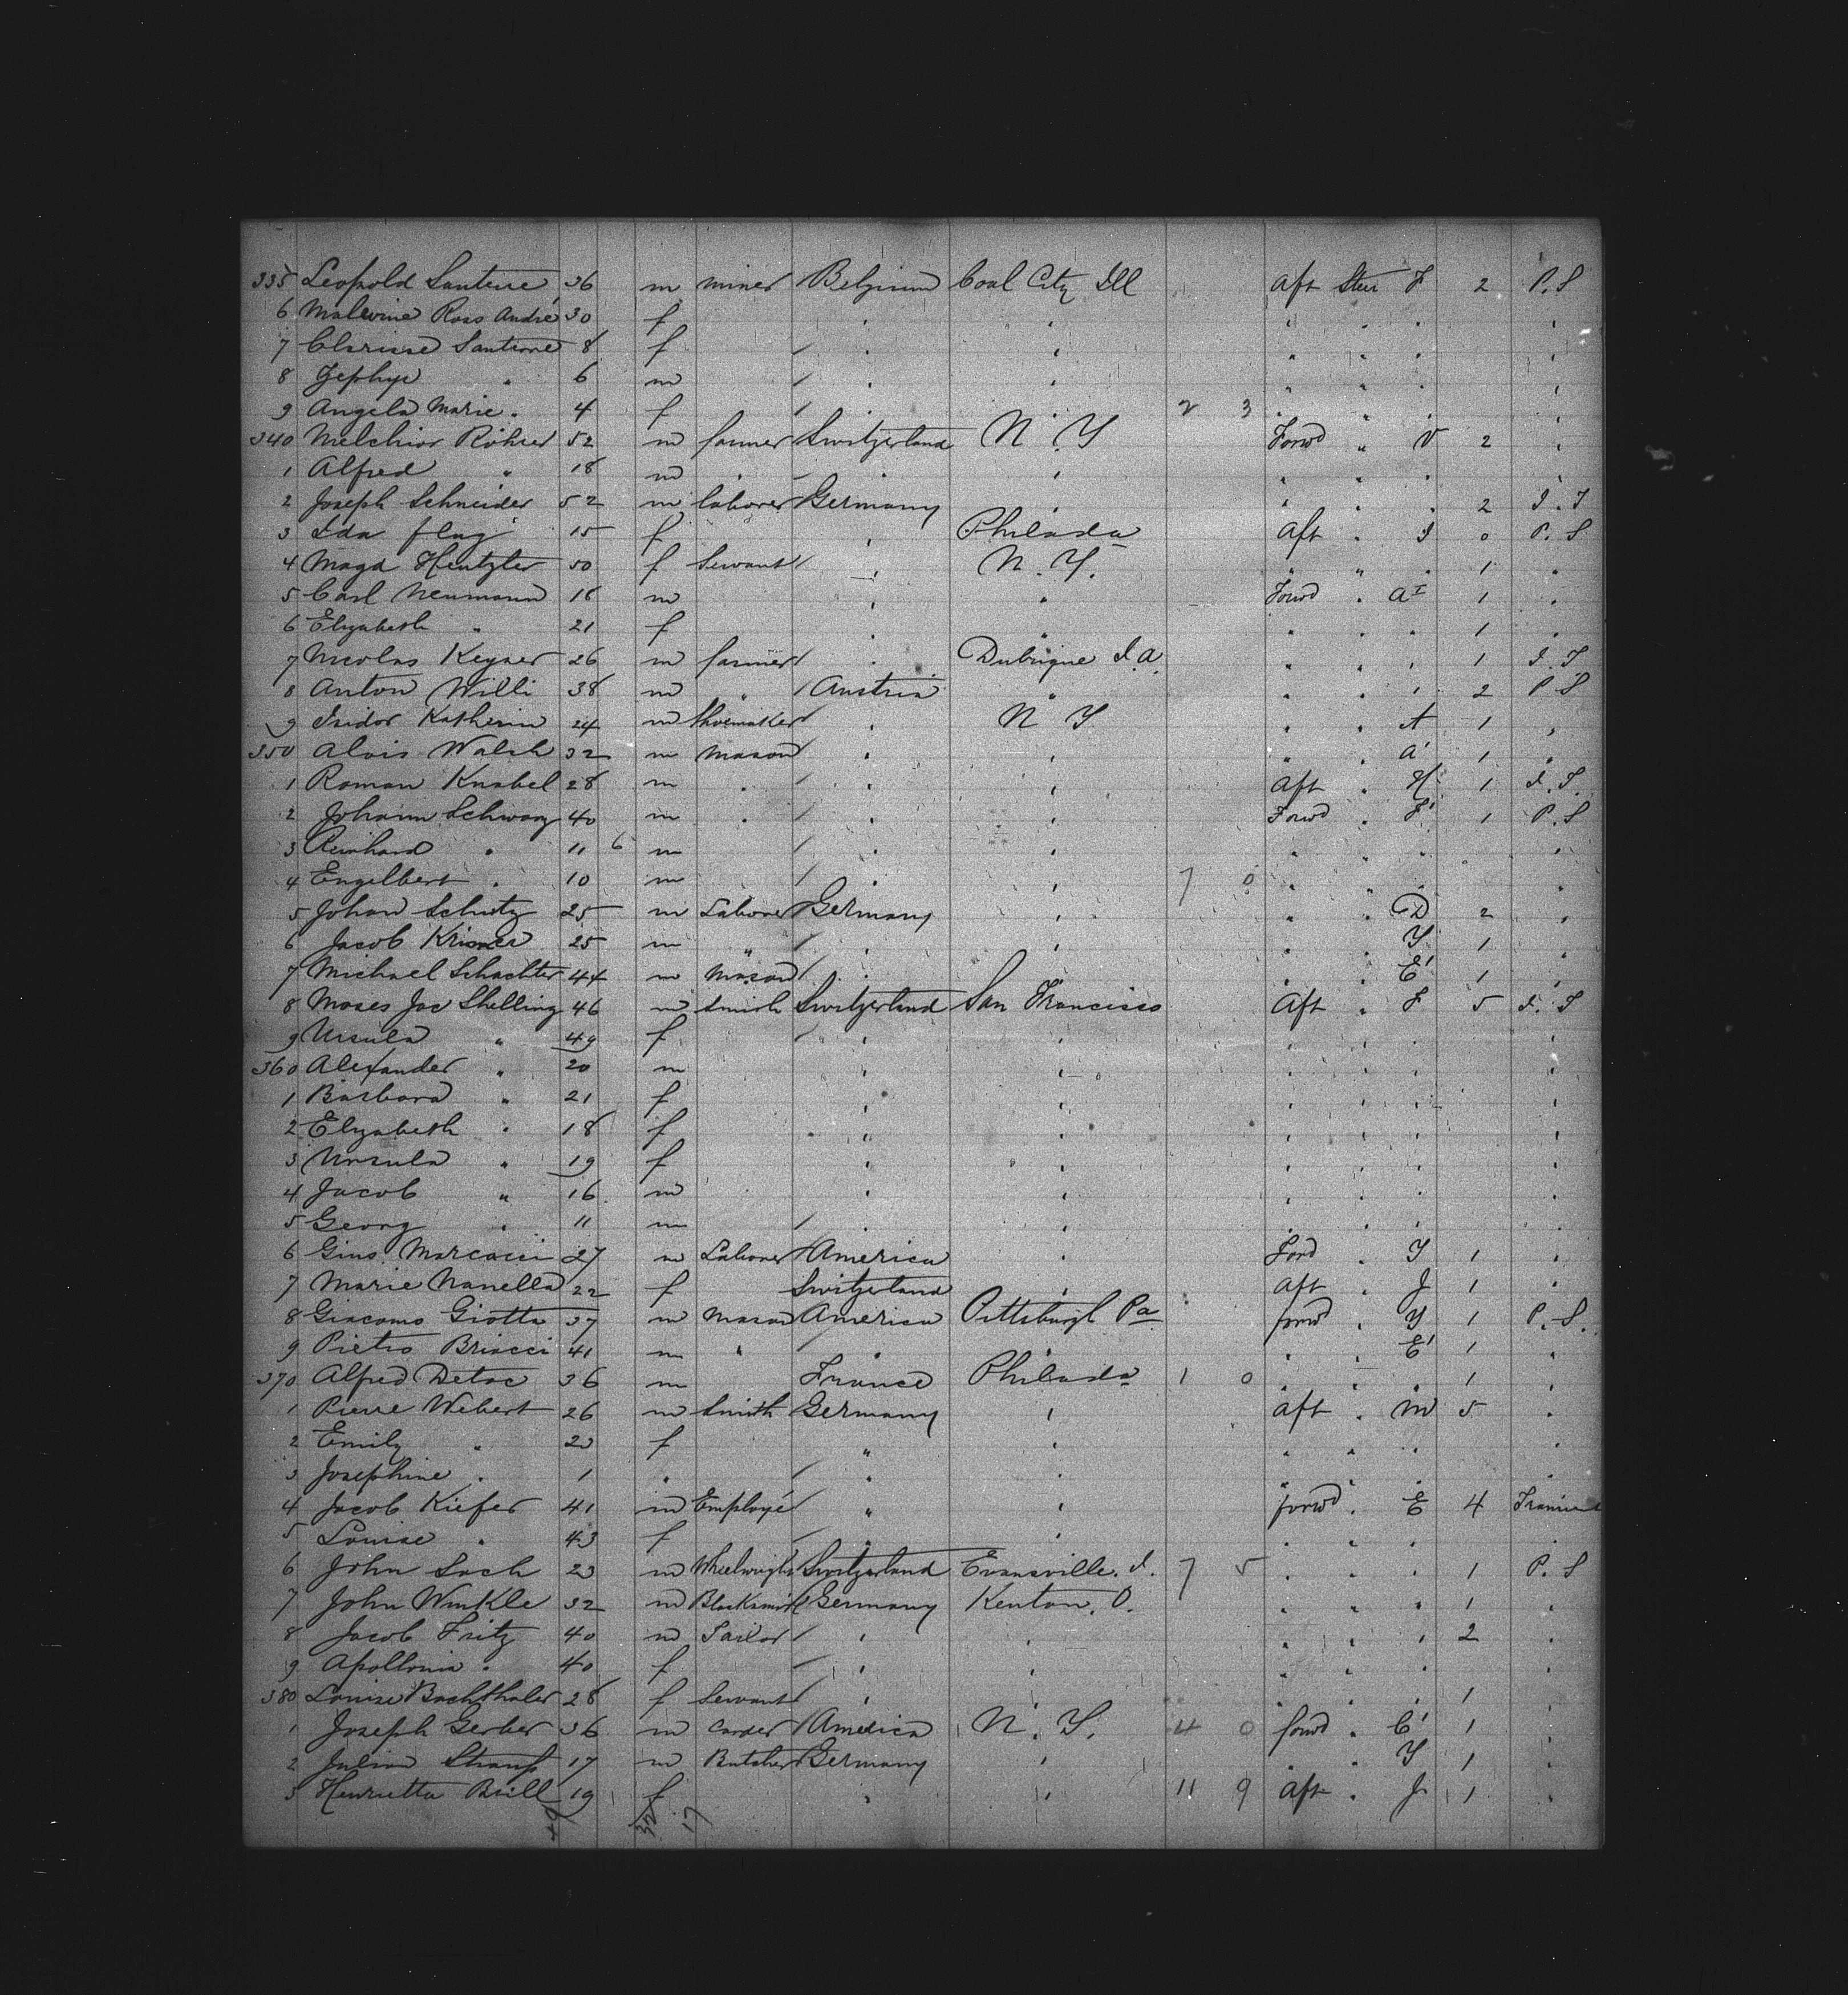 335 Leopold Santerre 36 m miner Belgium Coal City Ill Aft Steer F 2 P.S
6 Malvine Ross André 30 f " " " " " "
7 Clarisse Santerre 8 f " " " " " "
8 Zephyr " 6 m " " " " " "
9 Angela Marie " 4 f " " 2 3 " " " "
340 Melchior Röhrer 52 m farmer Switzerland N.Y Forwd " V 2 "
1 Alfred " 18 m " " " " " "
2 Joseph Schneider 52 m laborer Germany " " " " 2 I.T
3 Ida flug 15 f " Philada Aft " I 0 P.S
4 Magd Hentzler 50 f Servant " N.Y. " " " 1 "
5 Carl Neumann 18 m " " Forwd " A I 1 "
6 Elizabeth " 21 f " " " " " 1 "
7 Nicolas Keyser 26 m farmer " Dubuque I.A. " " " 1 I.T
8 Anton Willi 38 m " Austria " " " " 2 P.S
9 Isidor Katherin 24 m Shoemaker " N Y " " A 1 "
350 Alois Walch 32 m mason " " " " A' 1 "
1 Roman Knabel 28 m " " " Aft " H 1 I.T.
2 Johann Schwarz 40 m " " " Forwd " F' 1 P.S
3 Reinhard " 11 6 m " " " " " "
4 Engelbert " 10 m " " 7 0 " " " "
5 Johan Schutz 25 m Laborer Germany " " " D 2 "
6 Jacob Krismer 25 m " " " " Y 1 "
7 Michael Schachter 44 m Mason " " " E' 1 "
8 Moses Jac Shelling 46 m Smith Switzerland San Francisco Aft " F 5 I.T
9 Ursula " 49 f " " " " " "
360 Alexander " 20 m " " " " " "
1 Barbara " 21 f " " " " " "
2 Elizabeth " 18 f " " " " " "
3 Ursula " 19 f " " " " " "
4 Jacob " 16 m " " " " " "
5 Georg " 11 m " " " " " "
6 Gino Marcacci 27 m Laborer America " Forwd " Y 1 "
7 Marie Nanella 22 f Switzerland " Aft " J 1 "
8 Giacomo Giotta 37 m Mason America Pittsburgh Pa forwd " Y 1 P.S.
9 Pietro Briacci 41 m " " " " " E' 1 "
370 Alfred Detoe 36 m France Philada 1 0 " " " 1 "
1 Pierre Wibert 26 m Smith Germany " Aft " M 5 "
2 Emily " 23 f " " " " " "
3 Josephine " 1 " " " "
4 Jacob Kiefer 41 m Employé " " forwd " E 4 Transient
5 Louise " 43 f " " " " "
6 John Soch 23 m Wheelwright Switzerland Evansville. I. 7 5 " " " 1 P.S
7 John Winkle 32 m Blacksmith Germany Kenton, O. " " " 1 "
8 Jacob Fritz 40 m Tailor " " " " " 2 "
9 Apollonia " 40 f " " " " "
380 Louise Bachthaler 28 f Servant " " " " " 1 "
1 Joseph Gerber 36 m Carder America N.Y. 4 0 forwd " C' 1 "
2 Julian Straup 17 m Butcher Germany " " Y 1 "
3 Henrietta Brill 19 f " " 11 9 Aft " J 1 "
49 32 17